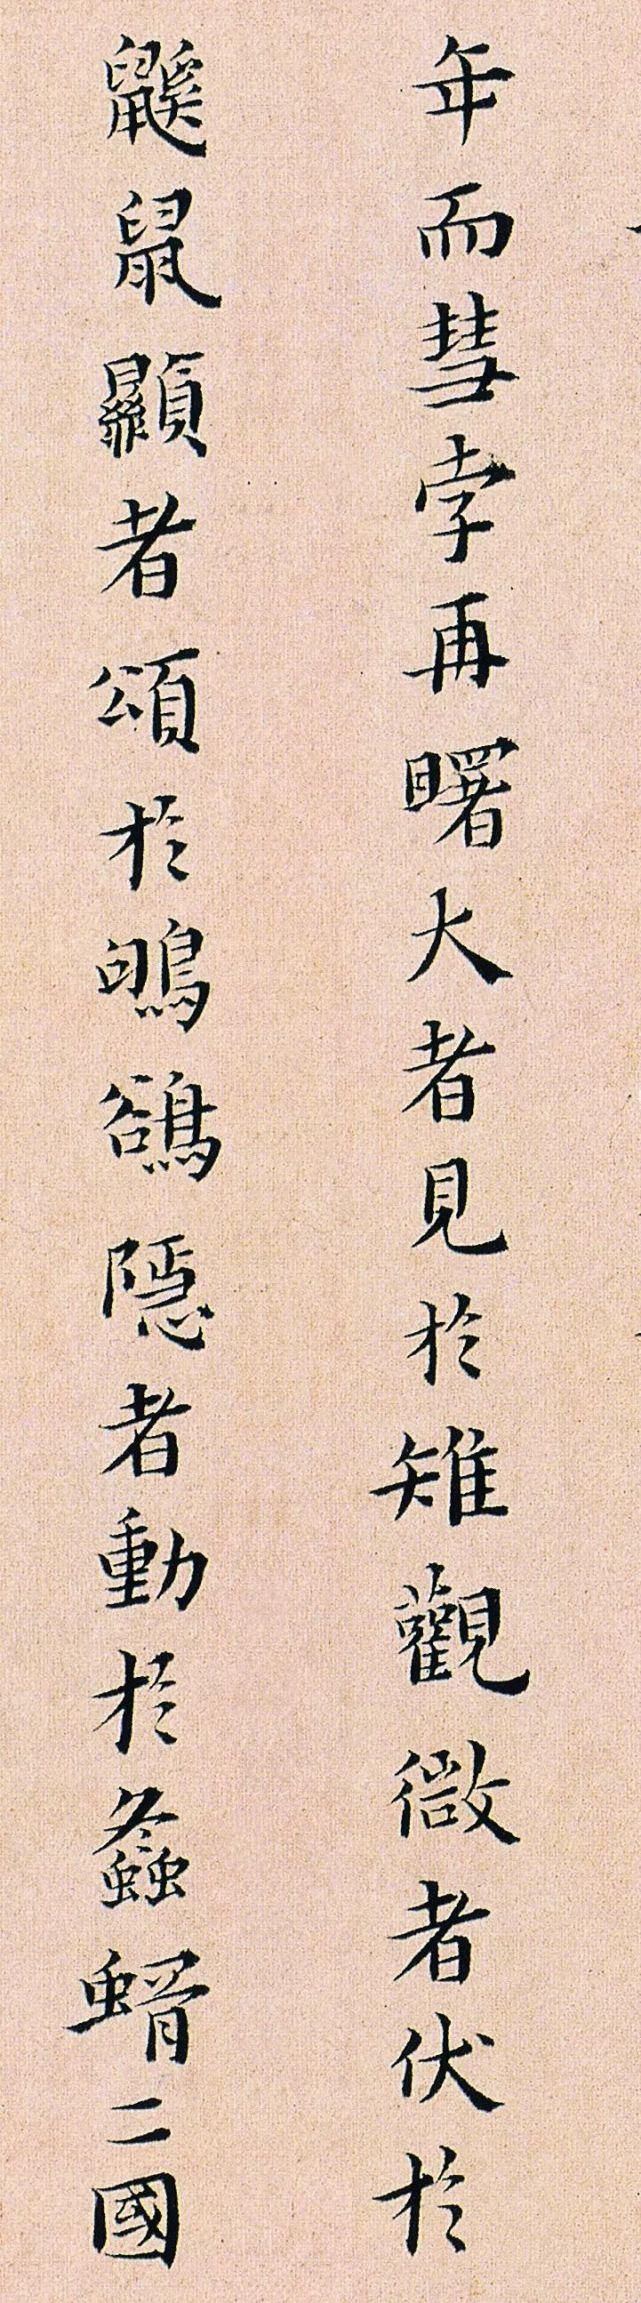 年而彗孛再曙大者見於雉觀微者伏於
鼷鼠顯者頌於鴝鵒隱者動於螽蝑二國